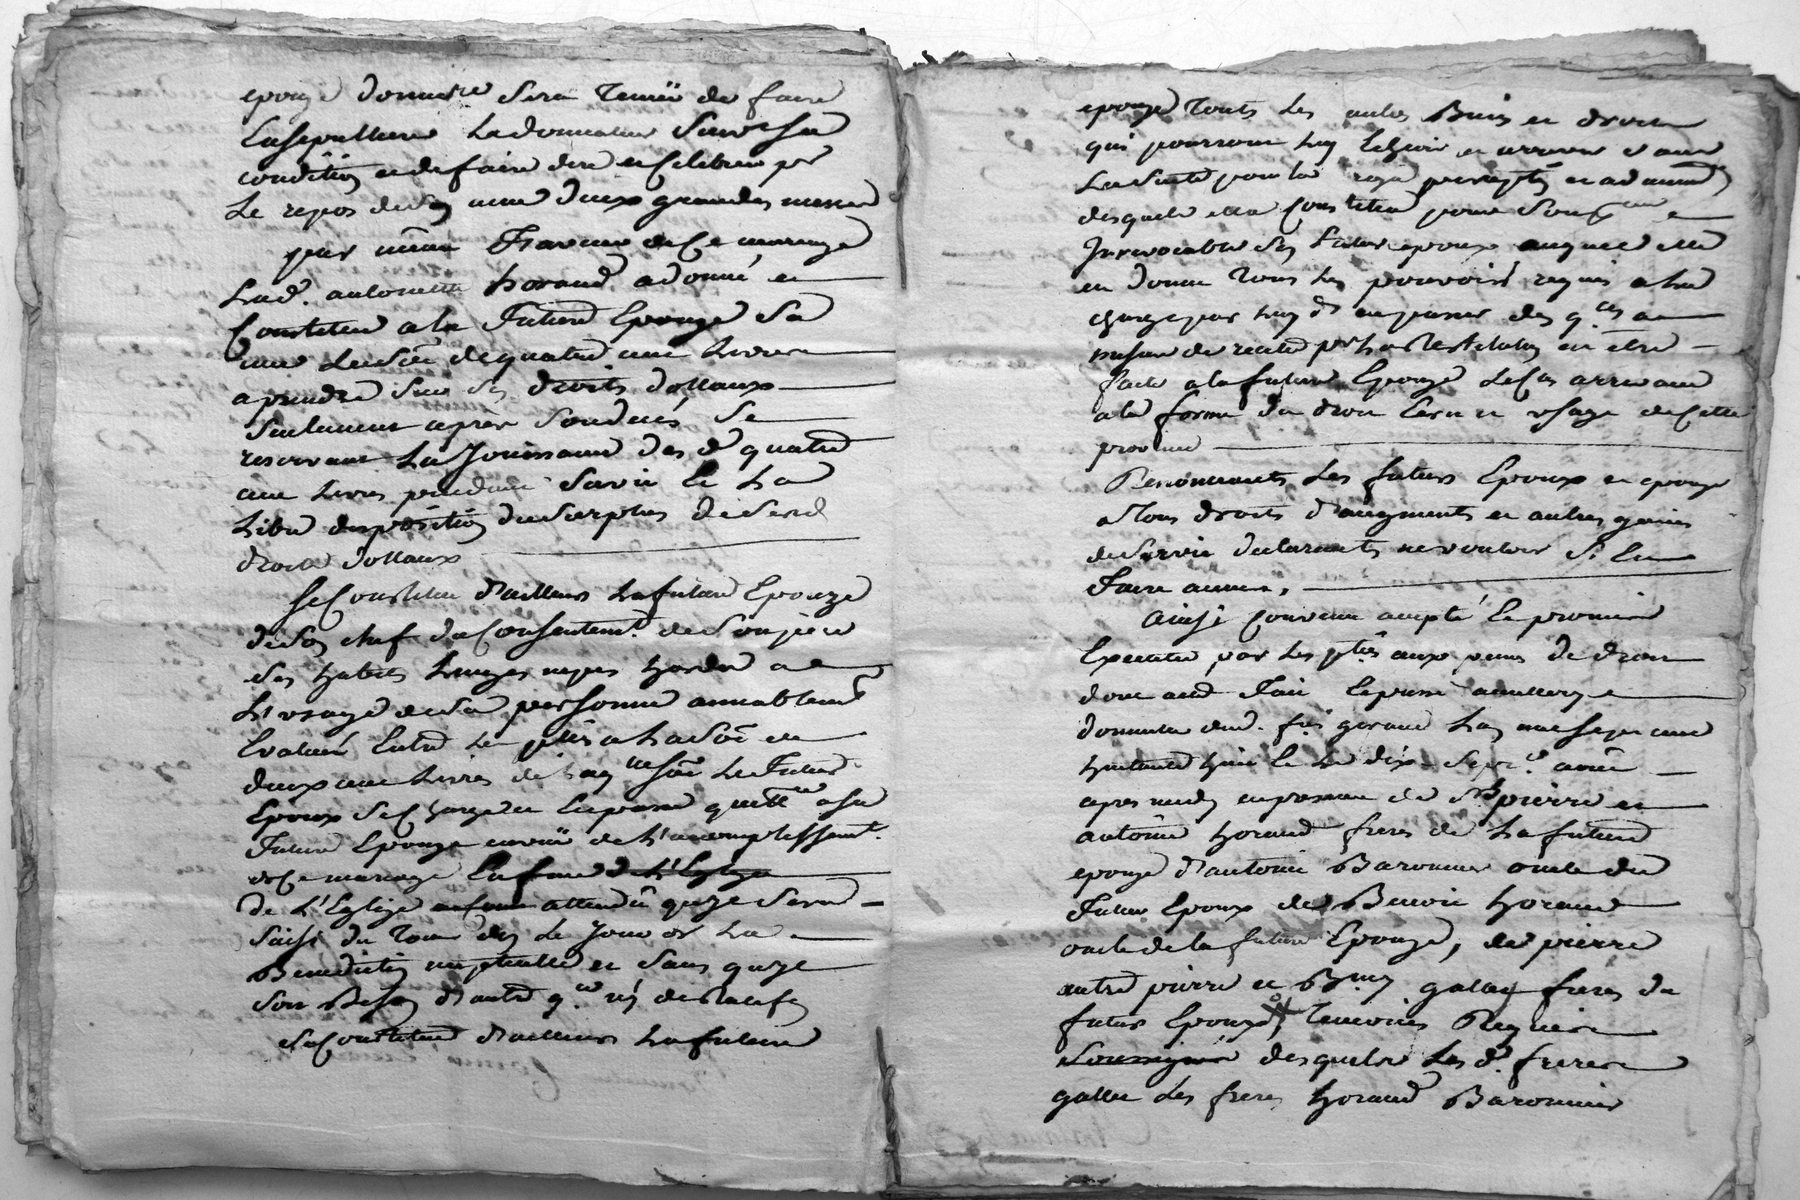 epouze donnatre sera tenüe de faire
La sepulture de la donnatrice suivt sa
condition et de faire dire et celebrer pr
le repos de son ame deux grandes messes
par mème faveur de ce mariage
Lad. antoinette horand a donné et
Constitué a la future Epouze sa
la Sôe de quatre cent Livres
a prendre sur ses droits dottaux
seulement après son decés se
reservant La Jouissance des d quatre
cent Livres pendant sa vie et La
Libre disposition du surplus de sesd
droits dottaux
Se Constitue d'ailleurs La future Epouze
de son chef du Consentemt. de son pere
ses habits Linges nipes hardes a
L'usage de sa personne annablemt
Evalués Entre les pties a La Sôe de
deux cent Livres de Laqlle sôe Le futur
Epoux se charge et En passe quittce a sa
future Epouze en vüe de L'accomplissemt.
de ce mariage En face de L'Eglize
de L'Eglize attendû qu'il sera
saisi du tout dès Le Jour de La
Benediction nuptialle et sans qu'il
soit Besoin d'autre qce ny de Reçeu
se Constitue d'ailleurs La future
epouze touts Les autres Biens et droits
qui pourront Luy Echeoir et arriver d'avenir
La suite pour la
desquels elle Constitue pour son pr
Irrevocable Son futur epoux auquel elle
en donne tous Les pouvoirs requis a La
charge par Luy d'en passer des qces a
mesure de recette pr La Restitution en être
faite a la future Epouze Le Cas arrivant
a la forme du droit Ecrit et usage de Cette
province
Renonceants Les futurs Epoux et epouze
a tous droits d'augments et autres gains
de survie declarants ne vouloir S'En
faire aucuns,
Ainsi Convenu accepté Et promis
Executer par Les pties aux peines de droit
dont acte fait Et passé
domicile dud. frs gerand L'an mil sept cent
huitante huit Et Le dix Sepre avant
apres midy en presence de Srs pierre et
antoine horand freres de La future
epouze d'antoine Baronnier oncle du
futur Epoux de Benoit horand
oncle de la future Epouze, de pierre
autre pierre et Bmy gallay freres du
futur Epoux, temoins Requis
Soussignés desquels Les d. freres
gallay Les freres horand Baronnier